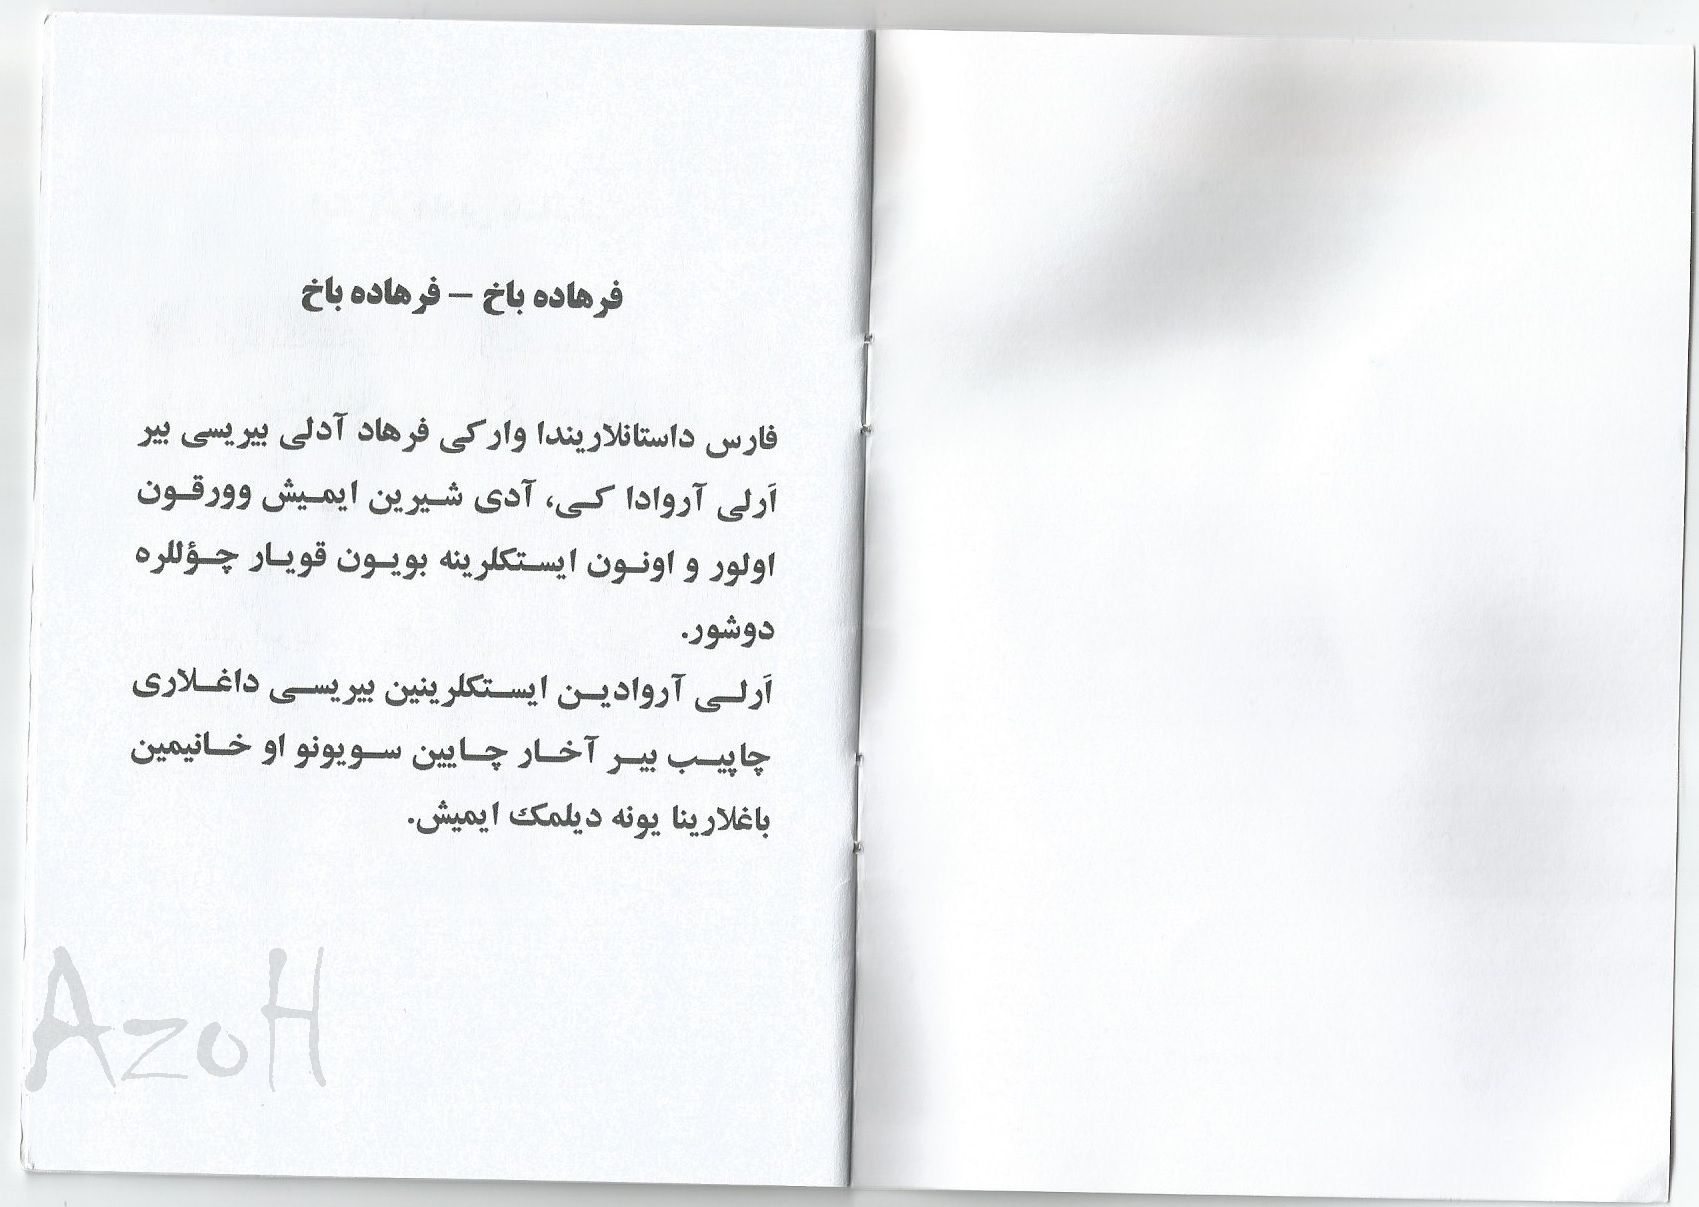 فرهاده باخ – فرهاده باخ
فارس داستانلاریندا وارکی فرهاد آدلی بیریسی بیر
اَرلی آروادا کی، آدی شیرین ایمیش وورقون
اولور و اونون ایستکلرینه بویون قویار چؤللره
دوشور.
اَرلی آروادین ایستکلرینین بیریسی داغلاری
چاپیب بیر آخار چایین سویونو او خانیمین
باغلارینا یونه دیلمک ایمیش.
AzoH